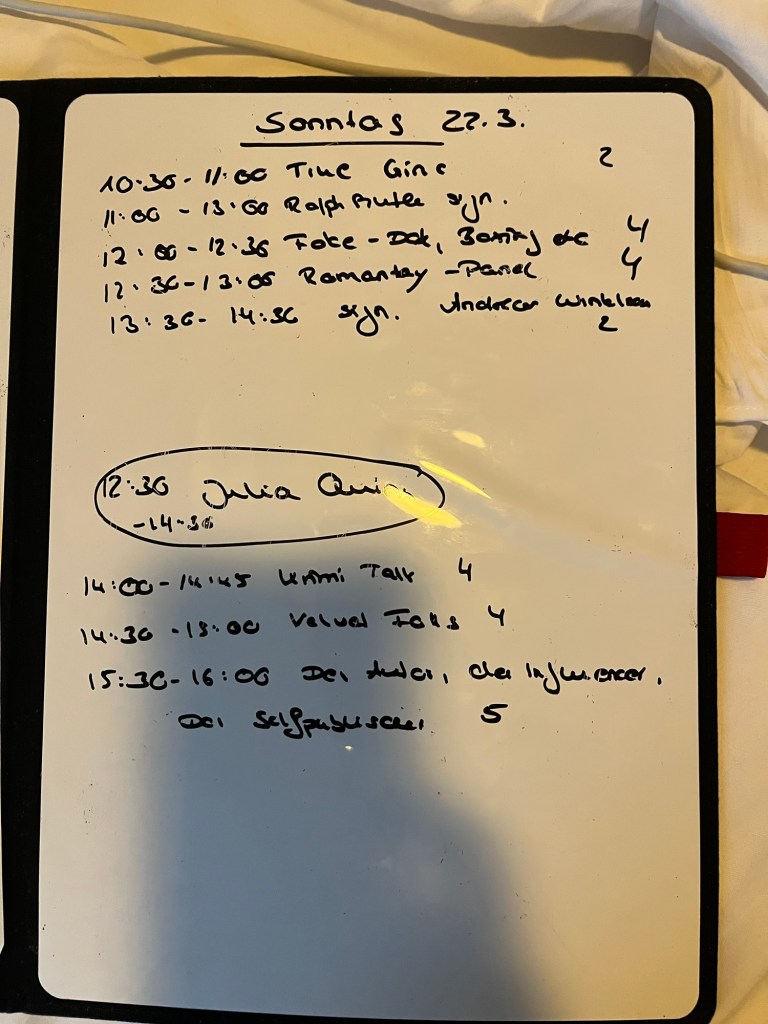 Sonntag 22.3.
10:30 - 11:00 Time 2
11:00 - 13:00 Ralph sign.
12:00 - 12:30 Fake - etc 4
12:30 - 13:00 Romantasy - Panel 4
13:30 - 14:30 sign. Andreas Winkelmann
2
12:30 Julia
- 14:30
14:00 - 14:45 Krimi Talk 4
14:30 - 15:00 Velvet Falls 4
15:30 - 16:00 Der Autor, der Influencer,
Der Selfpublischer 5